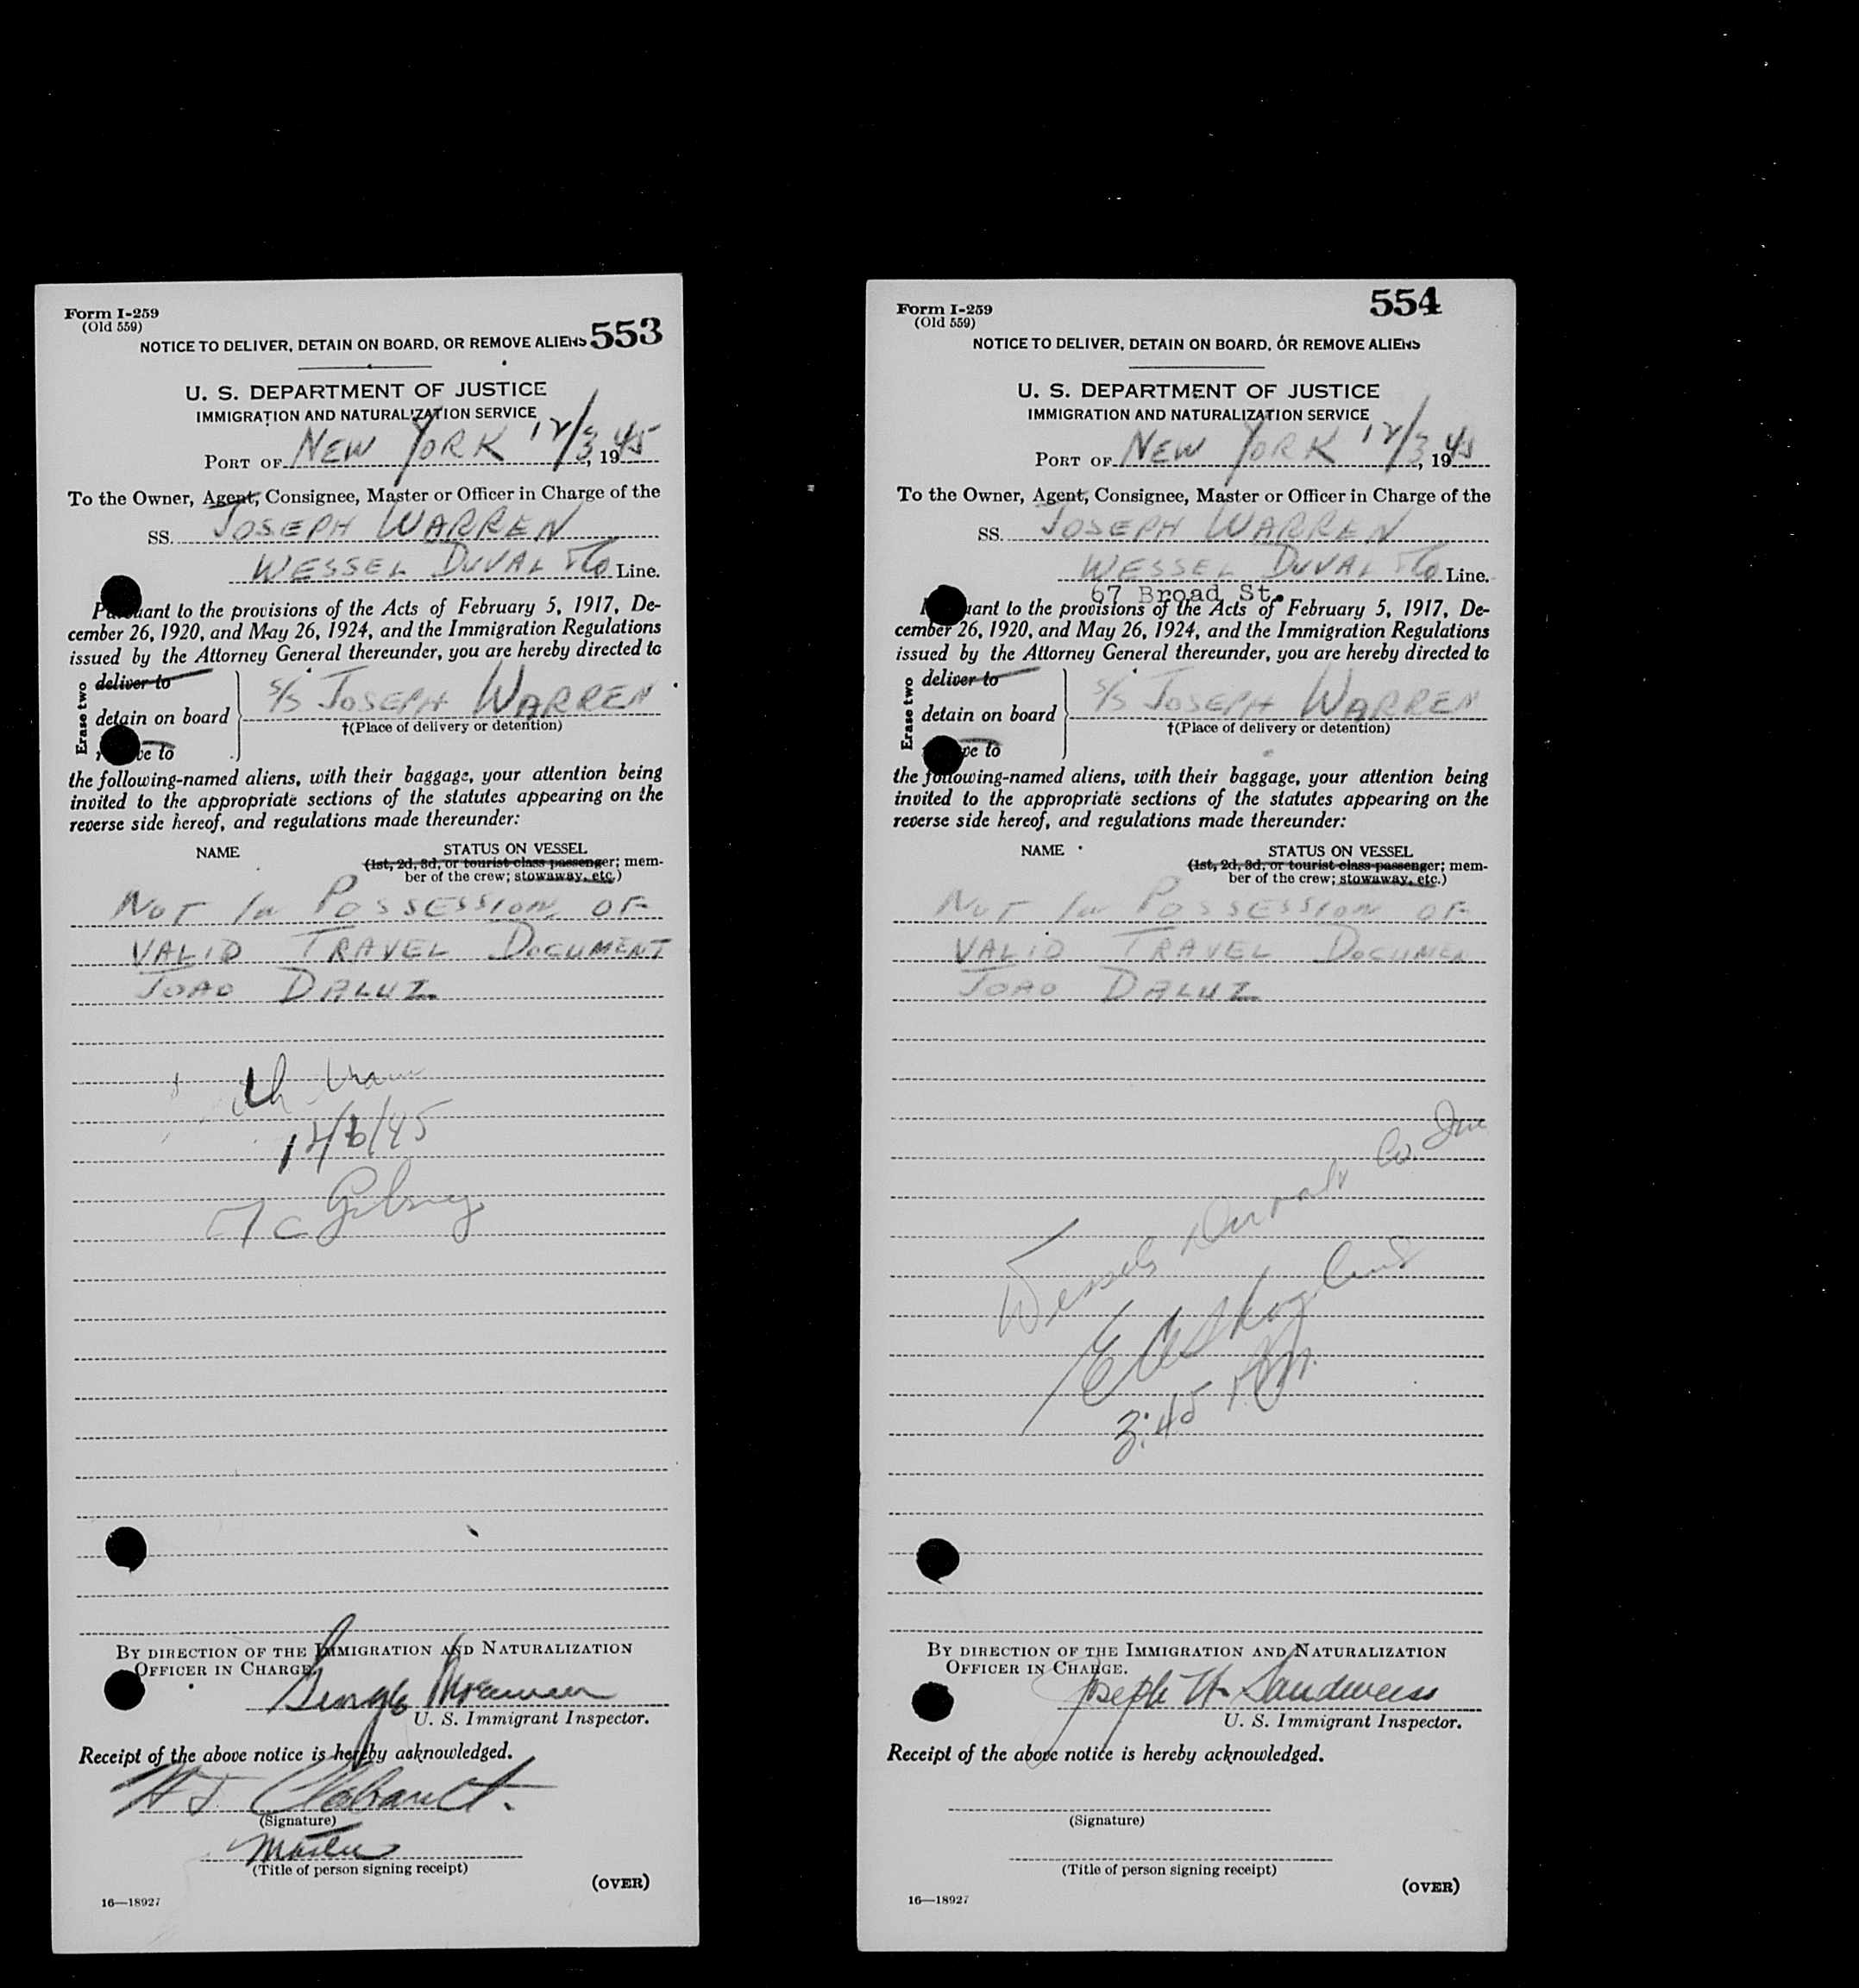 Form I-259
(Old 559)
553
NOTICE TO DELIVER, DETAIN ON BOARD, OR REMOVE ALIENS
U. S. DEPARTMENT OF JUSTICE
IMMIGRATION AND NATURALIZATION SERVICE
PORT OF NEW YORK 12/3, 1945
To the Owner, Agent, Consignee, Master or Officer in Charge of the
SS. JOSEPH WARREN
WESSEL DUVAL & Co Line.
Pursuant to the provisions of the Acts of February 5, 1917, De-
cember 26, 1920, and May 26, 1924, and the Immigration Regulations
issued by the Attorney General thereunder, you are hereby directed to
Erase two
deliver to
detain on board
ve to
S/S JOSEPH WARREN
†(Place of delivery or detention)
the following-named aliens, with their baggage, your attention being
invited to the appropriate sections of the statutes appearing on the
reverse side hereof, and regulations made thereunder:
NAME
STATUS ON VESSEL
(1st, 2d, 3d, or tourist class passenger; mem-
ber of the crew; stowaway, etc.)
NOT IN POSSESSION OF
VALID TRAVEL DOCUMENT
JOAO DALUZ
12/6/45
BY DIRECTION OF THE IMMIGRATION AND NATURALIZATION
OFFICER IN CHARGE.
U. S. Immigrant Inspector.
Receipt of the above notice is hereby acknowledged.
(Signature)
Master
(Title of person signing receipt)
(OVER)
16—18927
Form I-259
(Old 559)
554
NOTICE TO DELIVER, DETAIN ON BOARD, OR REMOVE ALIENS
U. S. DEPARTMENT OF JUSTICE
IMMIGRATION AND NATURALIZATION SERVICE
PORT OF NEW YORK 12/3, 1945
To the Owner, Agent, Consignee, Master or Officer in Charge of the
SS. JOSEPH WARREN
WESSEL DUVAL & Co Line.
67 Broad St.
uant to the provisions of the Acts of February 5, 1917, De-
cember 26, 1920, and May 26, 1924, and the Immigration Regulations
issued by the Attorney General thereunder, you are hereby directed to
Erase two
deliver to
detain on board
ve to
S/S JOSEPH WARREN
†(Place of delivery or detention)
the following-named aliens, with their baggage, your attention being
invited to the appropriate sections of the statutes appearing on the
reverse side hereof, and regulations made thereunder:
NAME
STATUS ON VESSEL
(1st, 2d, 3d, or tourist class passenger; mem-
ber of the crew; stowaway, etc.)
NOT IN POSSESSION OF
VALID TRAVEL DOCUMEN
JOAO DALUZ
Co. Inc
3:45 PM.
BY DIRECTION OF THE IMMIGRATION AND NATURALIZATION
OFFICER IN CHARGE.
Joseph H. Sandweiss
U. S. Immigrant Inspector.
Receipt of the above notice is hereby acknowledged.
(Signature)
(Title of person signing receipt)
(OVER)
16—18927